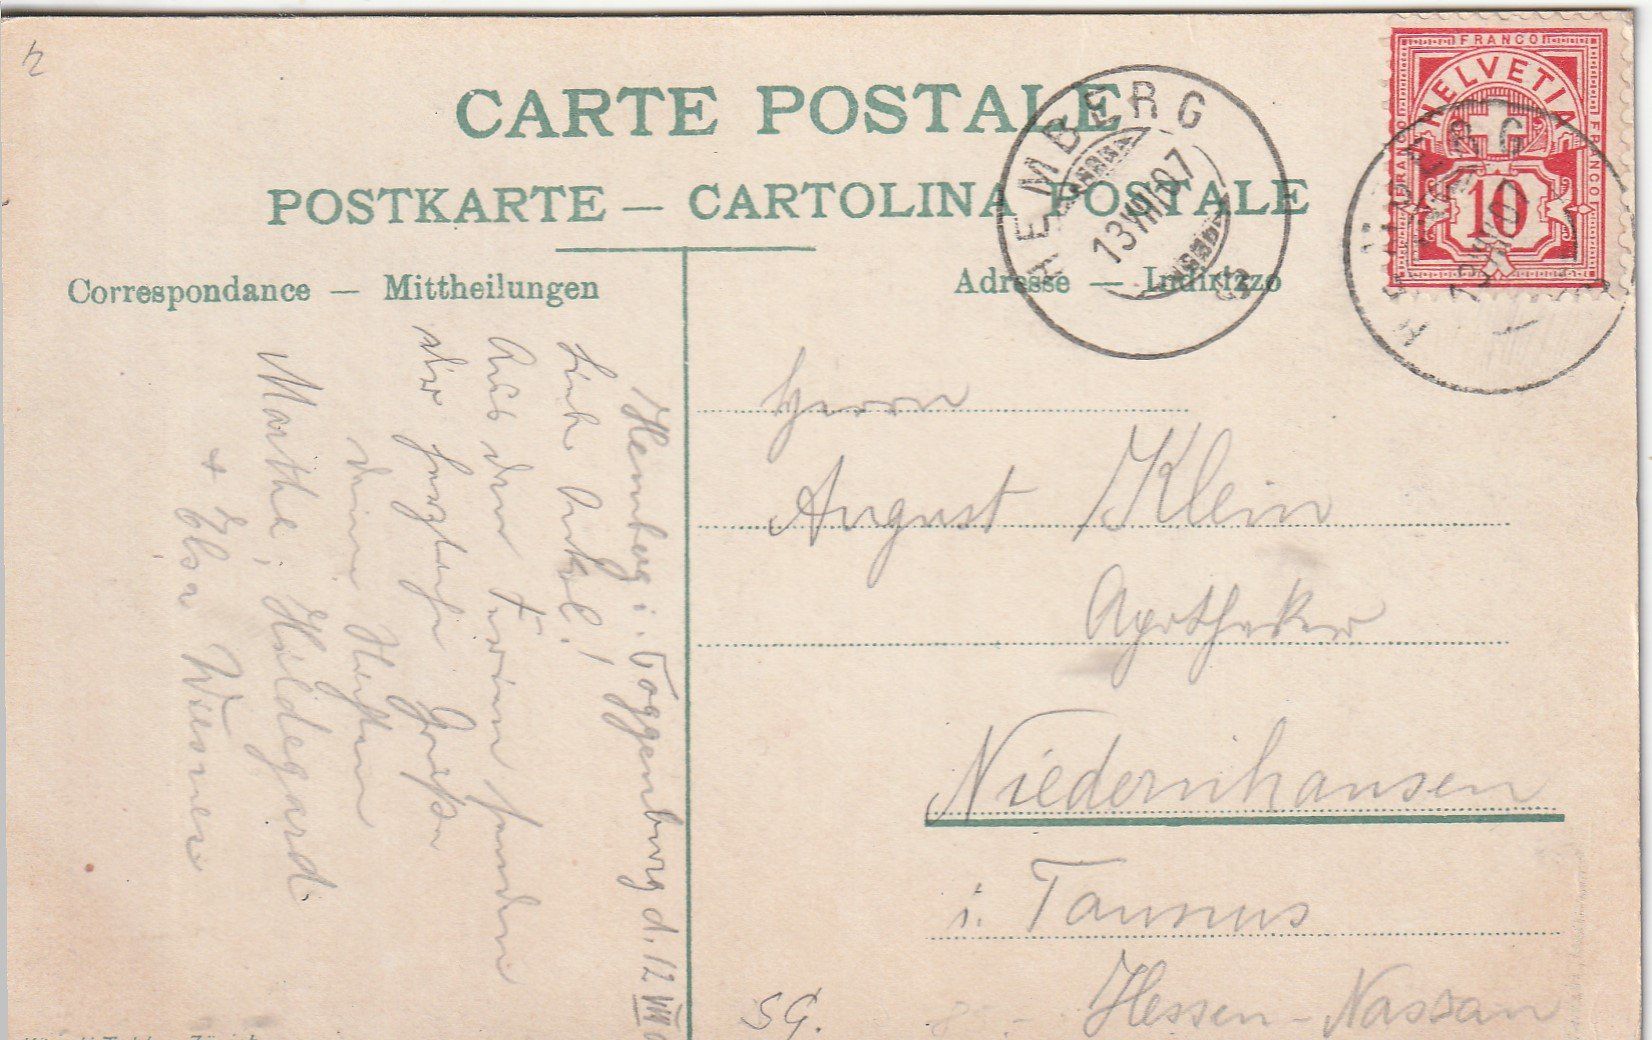 CARTE POSTALE
POSTKARTE — CARTOLINA POSTALE
Correspondance — Mittheilungen
Adresse — Indirizzo
HEMBERG
13 VIII 07
FRANCO
FRANCO
FRANCO
HELVETIA
10
HEMBERG
13 VIII 07
Hemberg i. Toggenburg d. 12 VIII 0
Lieb. Onkel!
Aus den Ferien senden
dir herzliche Grüße
deine Nichten
Marthe, Hildegard
+ Elsa Wiesner
Herrn
August Klein
Apotheker
Niedernhausen
i. Taunus
Hessen-Nassau
SG.